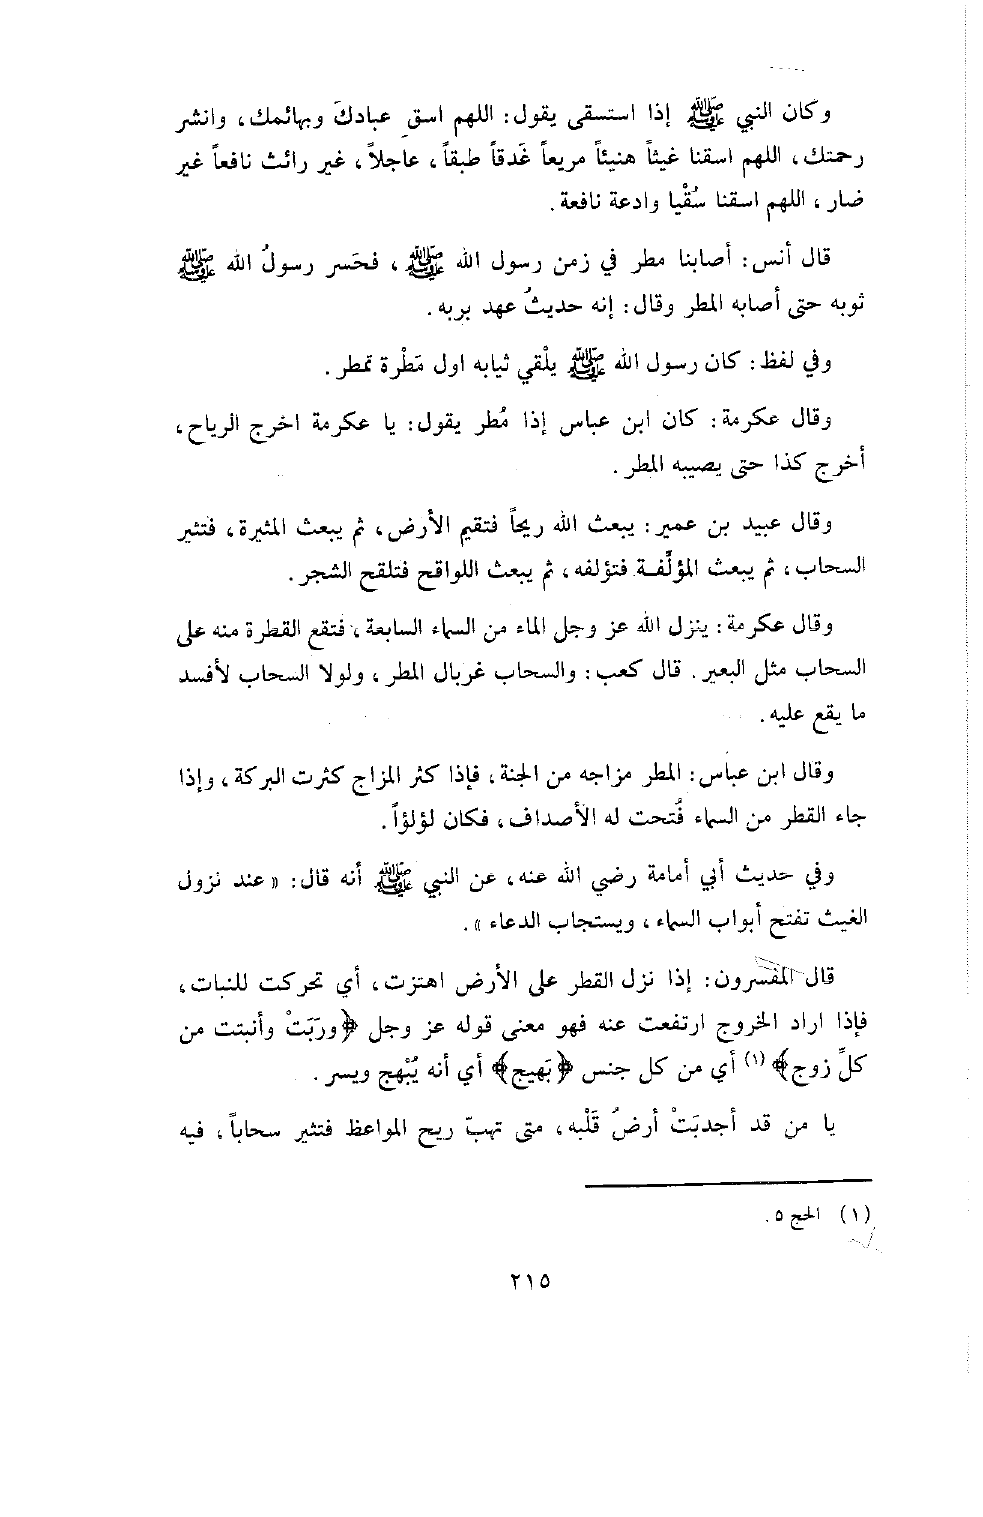 وكان النبي ﷺ إذا استسقى يقول: اللهم اسقِ عبادكَ وبهائمك، وانشر
رحمتك، اللهم اسقنا غيثاً هنيئاً مريعاً غَدقاً طبقاً، عاجلاً، غير رائث نافعاً غير
ضار، اللهم اسقنا سُقْيا وادعة نافعة.
قال أنس: أصابنا مطر في زمن رسول الله ﷺ، فحَسر رسولُ الله ﷺ
ثوبه حتى أصابه المطر وقال: إنه حديثُ عهد بربه.
وفي لفظ: كان رسول الله ﷺ يلْقي ثيابه اول مَطْرة تمطر.
وقال عكرمة: كان ابن عباس إذا مُطر يقول: يا عكرمة اخرج الرياح،
أخرج كذا حتى يصيبه المطر.
وقال عبيد بن عمير: يبعث الله ريحاً فتقيم الأرض، ثم يبعث المثيرة، فتثير
السحاب، ثم يبعث المؤلِّفة فتؤلفه، ثم يبعث اللواقح فتلقح الشجر.
وقال عكرمة: ينزل الله عز وجل الماء من السماء السابعة، فتقع القطرة منه على
السحاب مثل البعير. قال كعب: والسحاب غربال المطر، ولولا السحاب لأفسد
ما يقع عليه.
وقال ابن عباس: المطر مزاجه من الجنة، فإذا كثر المزاج كثرت البركة، وإذا
جاء القطر من السماء فُتحت له الأصداف، فكان لؤلؤاً.
وفي حديث أبي أمامة رضي الله عنه، عن النبي ﷺ أنه قال: «عند نزول
الغيث تفتح أبواب السماء، ويستجاب الدعاء».
قال المفسرون: إذا نزل القطر على الأرض اهتزت، أي تحركت للنبات،
فإذا اراد الخروج ارتفعت عنه فهو معنى قوله عز وجل ﴿ورَبَتْ وأنبتت من
كلِّ زوج﴾ (١) أي من كل جنس ﴿بَهيج﴾ أي أنه يُبْهج ويسر.
يا من قد أجدبَتْ أرضُ قَلْبه، متى تهبّ ريح المواعظ فتثير سحاباً، فيه
(١) الحج ٥.
٢١٥